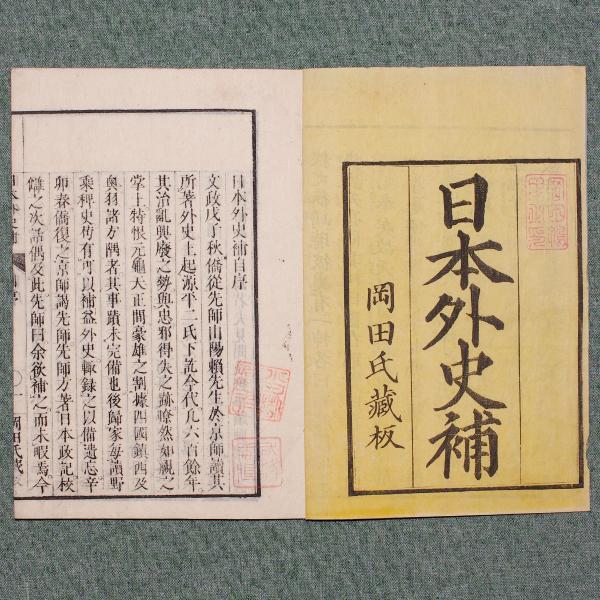 日本外史補
岡田氏藏板
日本外史補自序
文政戊子秋僑從先師山陽賴先生於京師讀其
所著外史上起源平二氏下訖今代凡六百餘年
其治亂興廢之勢與忠邪得失之跡瞭然如視之
掌上特恨元龜天正間豪雄之割據四國鎭西及
奧羽諸方隅者其事蹟未完備也後歸家每讀野
乘稗史苟有可以補益外史輙錄之以備遺忘辛
卯春僑復之京師謁先師先師方著日本政記校
讎之次話偶及此先師曰余欲補之而未暇焉今
一
岡田氏藏